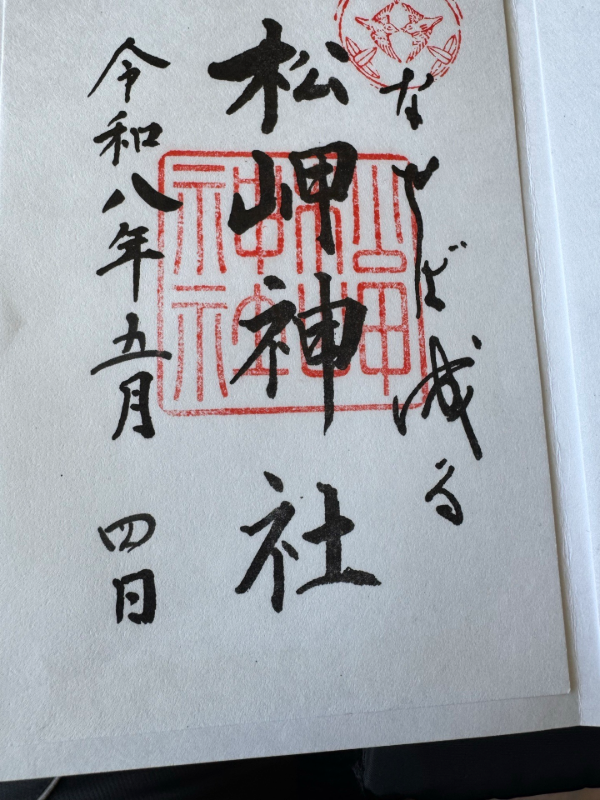 なせば成る
松岬神社
令和八年五月四日
松岬神社